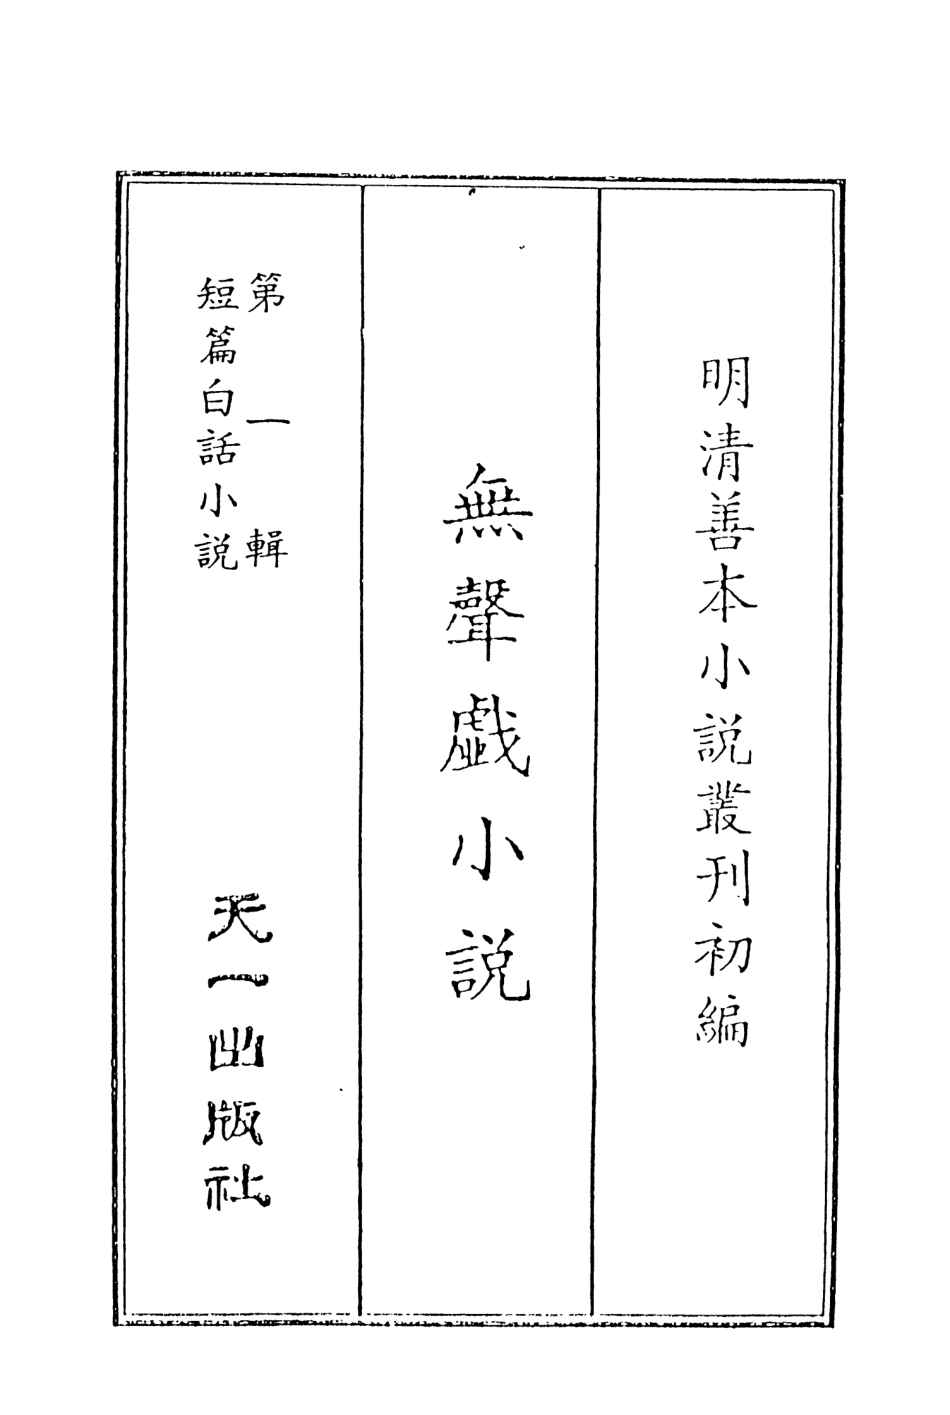 明清善本小説叢刊初編
無聲戲小説
第一輯
短篇白話小説
天一出版社